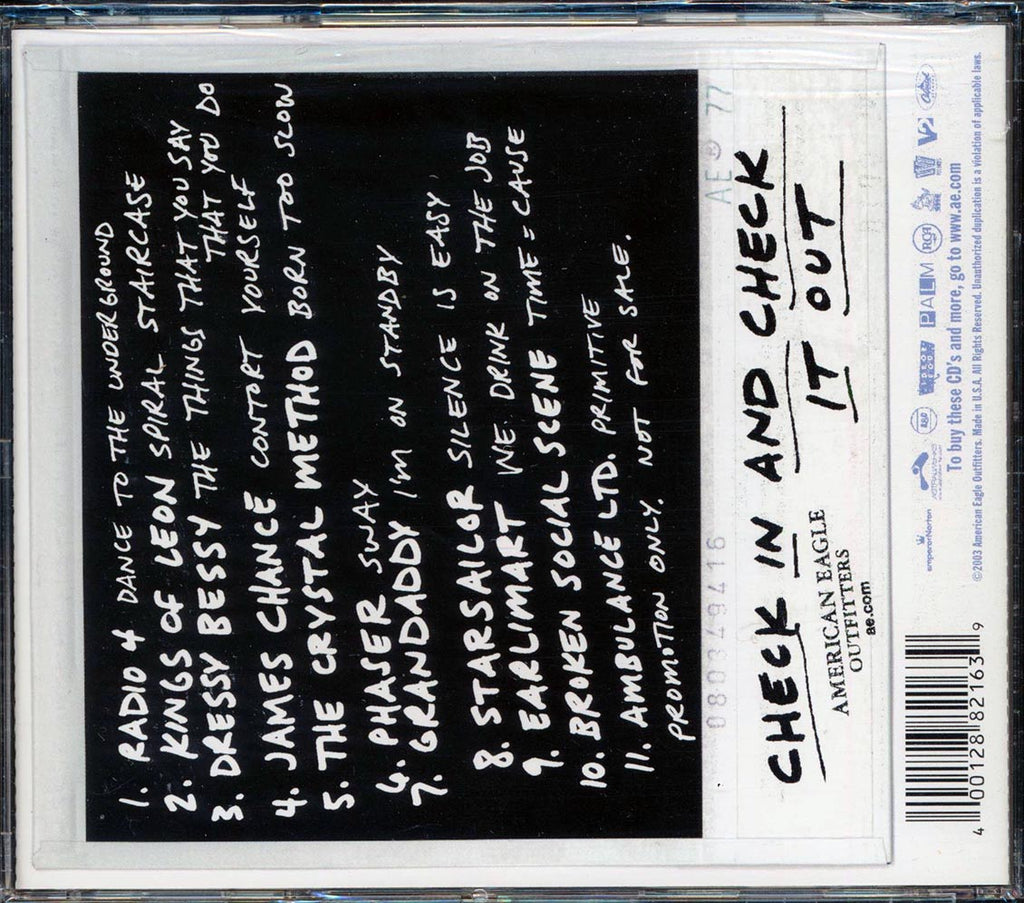 1. RADIO 4 DANCE TO THE UNDERGROUND
2. KINGS OF LEON SPIRAL STAIRCASE
3. DRESSY BESSY THE THINGS THAT YOU SAY
THAT YOU DO
4. JAMES CHANCE CONTORT YOURSELF
5. THE CRYSTAL METHOD BORN TOO SLOW
6. PHASER SWAY
7. GRANDADDY I'M ON STANDBY
8. STARSAILOR SILENCE IS EASY
9. EARLIMART WE DRINK ON THE JOB
10. BROKEN SOCIAL SCENE TIME = CAUSE
11. AMBULANCE LTD. PRIMITIVE
PROMOTION ONLY. NOT FOR SALE.
080349416 AE 77
CHECK IN AND CHECK
IT OUT
AMERICAN EAGLE
OUTFITTERS
ae.com
emperorNorton PALM RCA V2 Capitol
To buy these CD's and more, go to www.ae.com
©2003 American Eagle Outfitters. Made in U.S.A. All Rights Reserved. Unauthorized duplication is a violation of applicable laws.
4 00128 82163 9